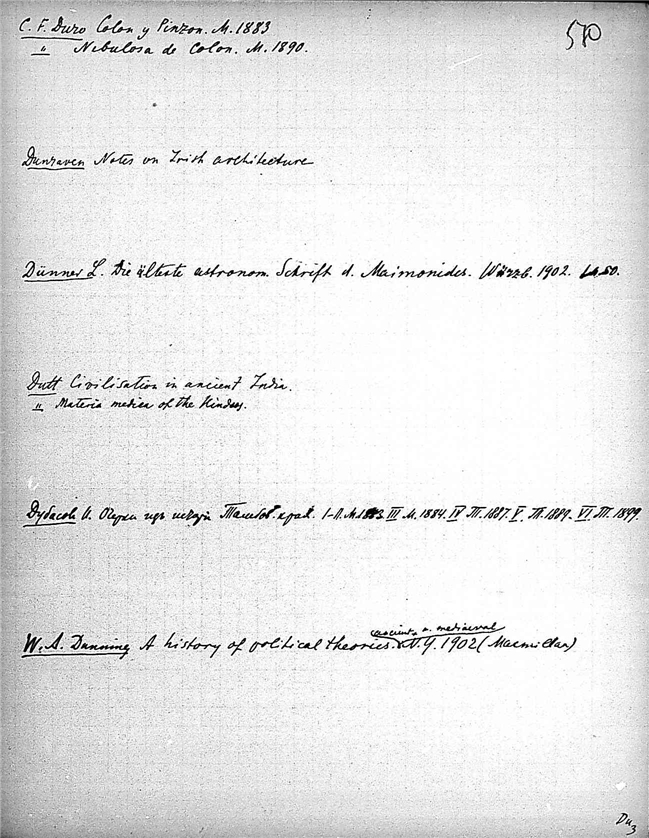 C. F. Duro Colon y Pinzon. M. 1883
570
" Nebulosa de Colon. M. 1890.
Dunraven Notes on Irish architecture
Dünner L. Die älteste astronom. Schrift d. Maimonides. Würzb. 1902.
Dutt Civilisation in ancient India.
" Materia medica of the Hindoos.
Дубасовъ И. Очерки изъ исторіи Тамбов. края. I-II. М. 1883 III М. 1884. IV Т. 1887. V. Т. 1889. VI. Т. 1899.
ancient a. mediaeval
W. A. Dunning A history of political theories. N. Y. 1902 (Macmillan)
Du3